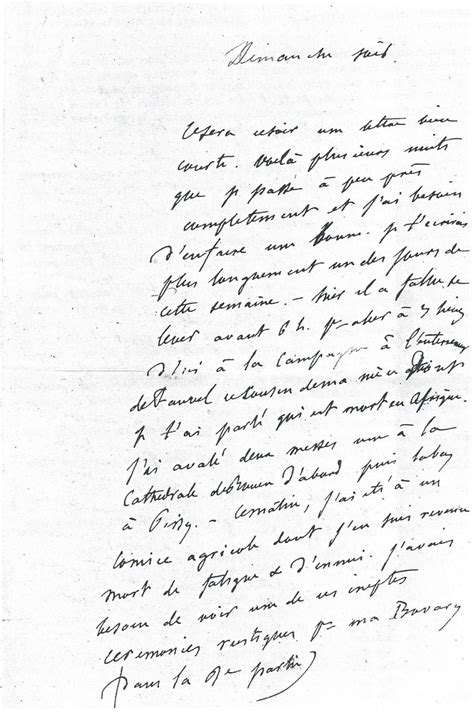 Dimanche soir.
Ce sera ce soir une lettre bien
courte. Voilà plusieurs nuits
que je passe à peu près
complètement et j'ai besoin
d'en faire une bonne. je t'écrirai
plus longuement un des jours de
cette semaine. – hier il a fallu se
lever avant 6 h. pr aller à 7 lieues
d'ici à la campagne à l'enterrement
de ce cousin de ma mère dont
je t'ai parlé qui est mort en Afrique.
j'ai avalé deux messes une à la
Cathédrale de Rouen d'abord puis
à Pissy. – ce matin, j'ai été à un
comice agricole dont j'en suis revenu
mort de fatigue & d'ennui. j'avais
besoin de voir une de ces ineptes
cérémonies rustiques pr ma Bovary
dans la 2e partie